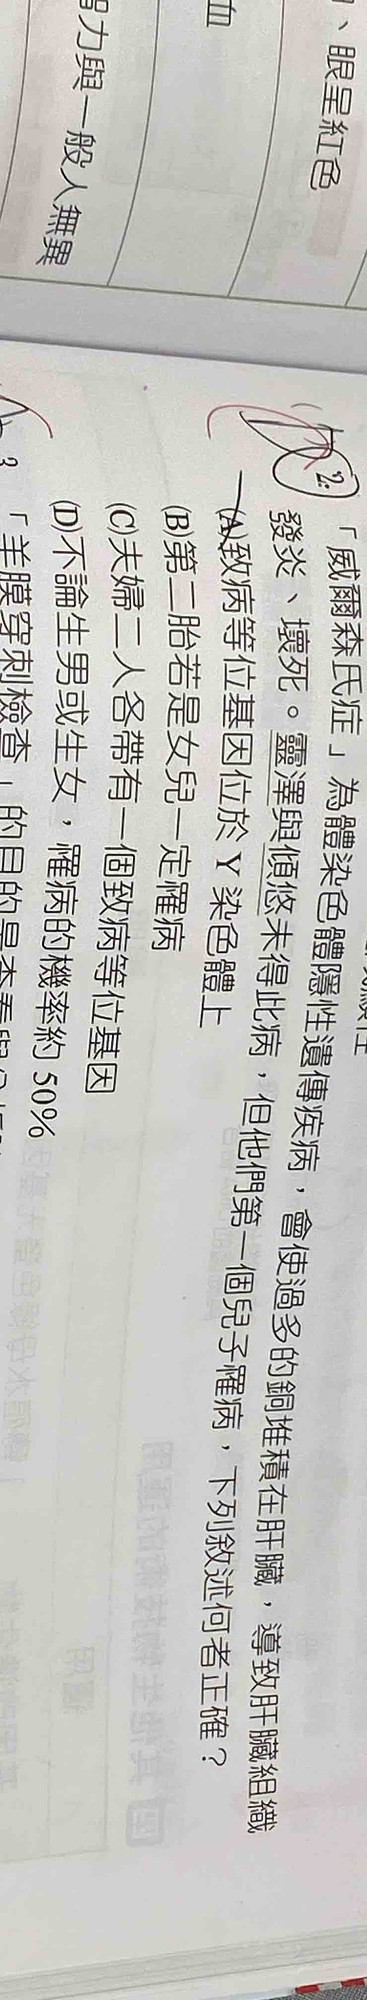 、眼呈紅色
血
力與一般人無異
2.
「威爾森氏症」為體染色體隱性遺傳疾病，會使過多的銅堆積在肝臟，導致肝臟組織
發炎、壞死。靈澤與傾悠未得此病，但他們第一個兒子罹病，下列敘述何者正確？
(A)致病等位基因位於 Y 染色體上
(B)第二胎若是女兒一定罹病
(C)夫婦二人各帶有一個致病等位基因
(D)不論生男或生女，罹病的機率約 50%
3
「羊膜穿刺檢查」的目的是查看與分析